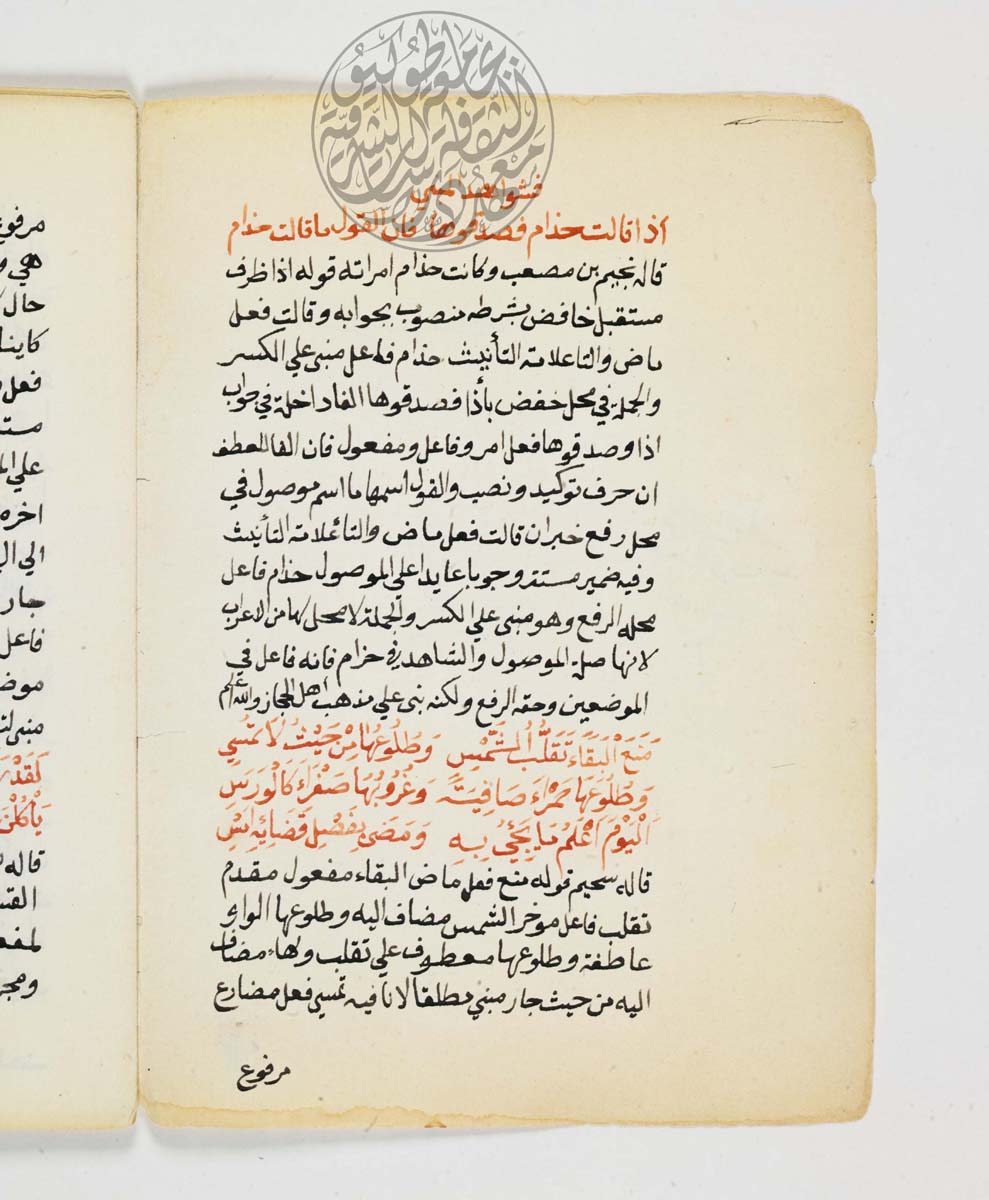 فشواهد المبني
اذا قالت حذام فصدقوها فان القول ما قالت حذام
قاله نجيم بن مصعب وكانت حذام امراته قوله اذا ظرف
مستقبل خافض بشرطه منصوب بجوابه وقالت فعل
ماض والتا علامة التأنيث حذام فاعل منبى علي الكسر
والجملة في محل خفض بأذا فصدقوها الفا داخلة في جواب
اذا وصدقوها فعل امر وفاعل ومفعول فان الفا للعطف
ان حرف توكيد ونصب والقول اسمها ما اسم موصول في
محل رفع خبر ان قالت فعل ماض والتائ علامة التأنيث
وفيه ضمير مستتر وجوبا عايدا على الموصول حذام فاعل
محله الرفع وهو مبنى علي الكسر والجملة لا محل لها من الاعراب
لانها صلة الموصول والشاهد في حزام فانه فاعل في
الموضعين وحقه الرفع ولكنه بنى علي مذهب اهل الحجاز والله اعلم
مَنَعَ الْبَقَاءَ تَقَلُّبُ الشَّمْسِ وَطُلُوعُهَا مِنْ حَيْثُ لَا تُمْسِي
وَطُلُوعُهَا حَمْرَاءَ صَافِيَةً وَغُرُوبُهَا صَفْرَاءَ كَالْوَرَسِ
الْيَوْمَ اَعْلَمُ مَا يَجِئُ بِهِ وَمَضَى بِفَصْلِ قَضَائِهِ اَمْسِ
قاله سحيم قوله منع فعل ماض البقاء مفعول مقدم
تقلب فاعل موخر الشمس مضاف اليه وطلوعها الواو
عاطفة وطلوعها معطوف علي تقلب وهاء مضاف
اليه من حيث جار مبني مطلقا لا نافيه تمسي فعل مضارع
مرفوع
مرفوع
هي و
حال
كاينا
فعل
مست
علي ال
اخره
الي ال
جار
فاعل
موض
مبنى ل
لَقَدْ رَ
يَأْكُلْنَ
قاله
القت
لمفع
ومجر